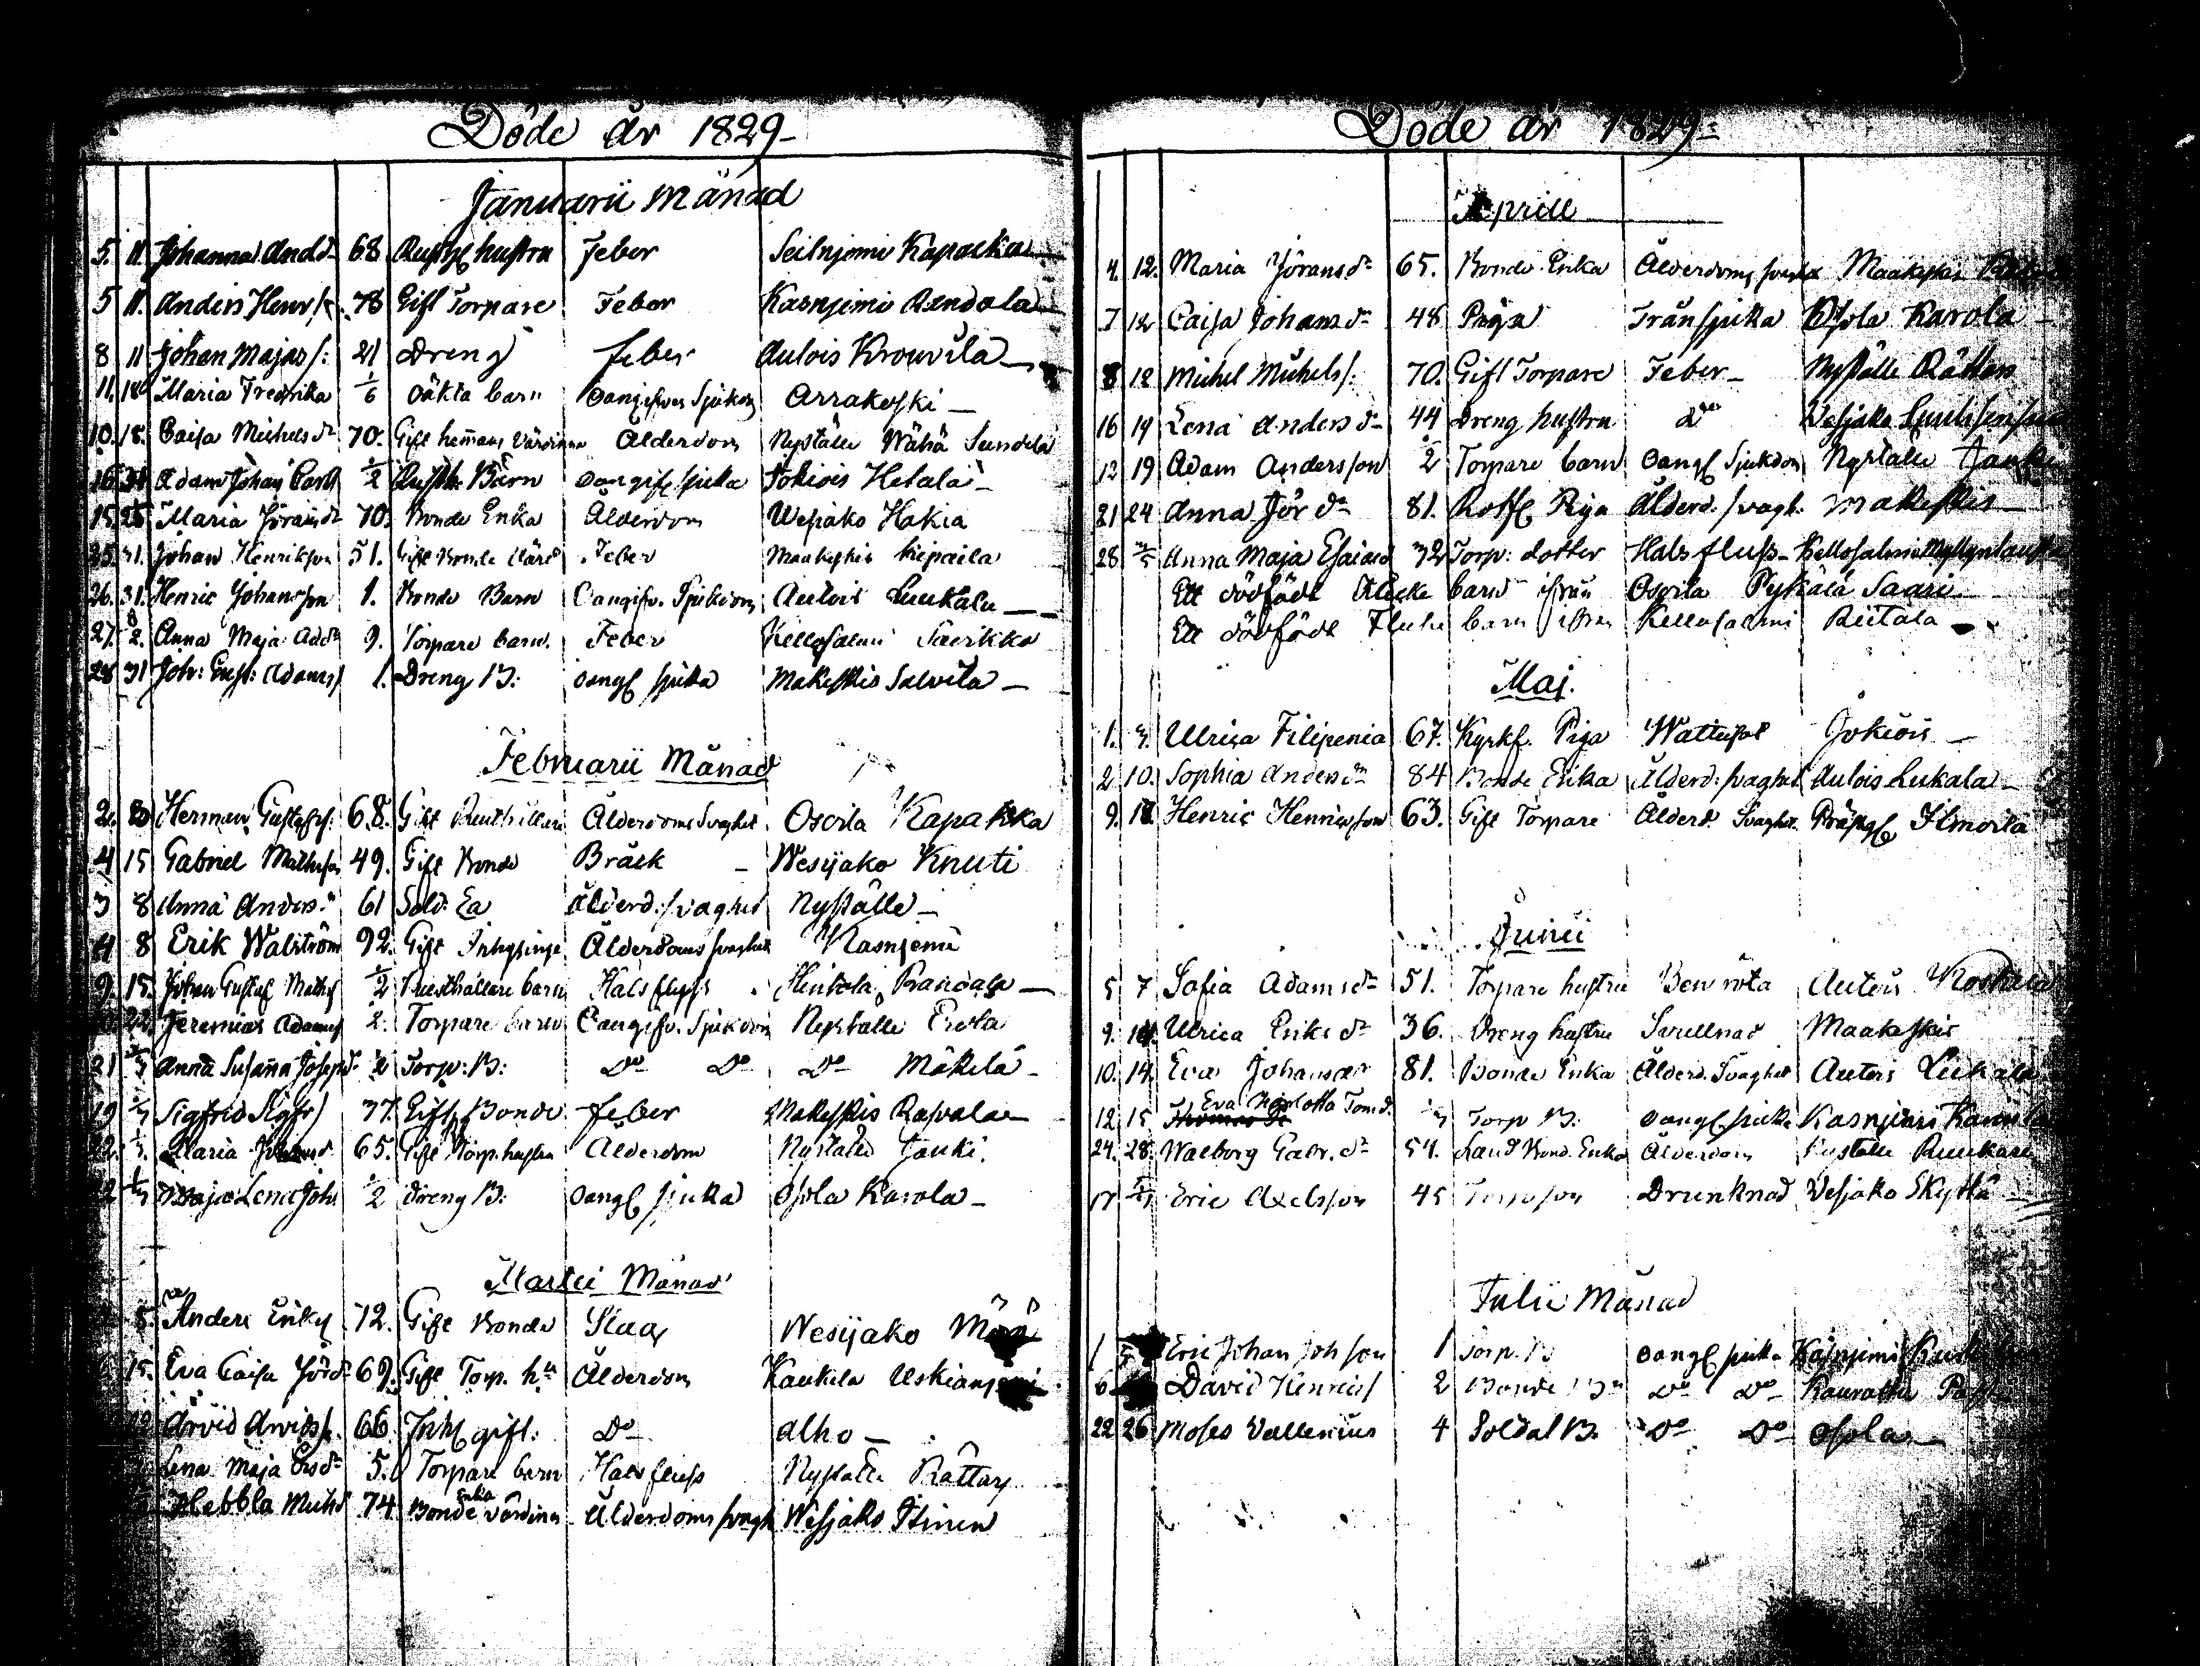 Döde år 1829
Januarii Månad
5. 11. Johanna And.dr 68 Rusth. hustru Feber Seitnjemi Kapakka
5 11. Anders Henr.s. 78 Gift Torpare Feber Kasnjemi Rendola
8 11 Johan Majas s: 21 Dreng feber Aulois Krouvila
11. 18 Maria Fredrika 1/6 oäkta barn oangifven Sjukdom Arrakoski
10. 18. Caisa Michelsdr 70. Gift hemans Värdinna Ålderdom Nyställe Wähä Sundila
16 Adam Johan Carls 1/2 Rusth. Barn oangif. sjuka Jokiois Hetala
15 25 Maria Jöransdr 70. Bonde Enka Ålderdom Wesiako Hakia
25. 31. Johan Henrikson 51. Gift Bonde Feber Maakeskis
26. 31. Henric Johansson 1. Bonde Barn Oangifv. Sjukdom Aulois Luukala
27. 8/2. Anna Maja Addr 9. Torpare barn. Feber Kellosalmi Saarikko
28 31 Joh: Gust: Adamss 1. Dreng B: oangf sjuka Makeskis Salvila
Februarii Månad
2. 8 Herman Gustafss: 68. Gift Rusthållare Ålderdoms Svaghet Osoila Kapakka
4 15 Gabriel Mathsson 49. Gift Bonde Bråck Wesijako Knuti
3 8 Anna Andersdr 61 Sold: Ea Ålderd: svaghet Nyställe
4 8 Erik Walström 92. Gift Inhysinge Ålderdoms svaghet Kasnjemi
9. 15. Johan Gustaf Mathss 1/2 Rusthållare barn Halsfluss Hinkola Randala
22 Jeremias Adamss 2. Torpare barn Oangifv. Sjukdom Nyställe Erola
21 Anna Susanna Josephdr 1/2 Torp: B: Do Do Do Mäkelä
19 1/3 Sigfrid Sigfrs 37. Gift Bonde feber Makeskis Rasvala
22. 1/3. Maria Johansd. 65. Gift Torp. hustru Ålderdom Nyställe Jauki.
1/3 Maja Lena Johs 1/2 Dreng B: oangf sjukd Osola Karola
Martii Månad
8. Anders Erikss 72. Gift Bonde Slag Wesijako
15. Eva Caisa Jördr 69. Gift Torp. hu Ålderdom Kaukela Uskianjemi
Arvid Arvidss. 66. Inh. gift: Do Alho
Lena Maja Ersdr 5. Torpare barn Halsfluss Nyställe Rättäry
Hebbla Michd 74 Bonde Enka värdinna Ålderdoms svagh Wesjako Itinen
Döde år 1829
Aprill
4. 12. Maria Jöransdr 65. Bonde Enka Ålderdoms svaghet Maakeskis
7 12 Caisa Johansdr 48 Piga Trånsjuka Osola Karola
8 12 Michel Michels s: 70. Gift Torpare Feber Nyställe Rättäri
16 19 Lena Andersdr 44 Dreng hustru Do Vesjako
12 19 Adam Andersson 1/2 Torpare barn Oangf Sjukdom Nyställe Jauki
21 24 Anna Jördr 81. Rotf. Piga Ålderd. svagh. Makeskis
28 3/5 Anna Maja Esaiasd 32 Torp: dotter Halsfluss Kellosalmi Myllynlausta
Ett dödfödt Flicke barn ifrån Osoila Pykälä Saari
Ett dödfödt Flicke barn ifrån Kellosalmi Riitala
Maj.
1. 3. Ulrica Filipenia 67. Kyrkf. Piga Wattusot Jokiois
2 10. Sophia Andersdr 84 Bonde Enka Ålderd: svaghet Aulois Lukala
9. 10. Henric Henricsson 63. Gift Torpare Ålderd. Svaghet. Prästg. Ilmoila
Junii
5 7 Sofia Adamsdr 51. Torpare hustru Benröta Autois Koskela
9. 14. Ulrica Eriksdr 36. Dreng hustru Svullnad Maakeskis
10. 14. Eva Johansdr 81. Bonde Enka Ålderd. Svaghet Autois Lukala
12 15 Eva Charlotta Tomd. 1/3 Torp B: oangf sjukd. Kasnjemi
24. 28. Walborg Gabr.dr 54. Land Bond. Enka Ålderdom Nyställe Ruukari
17 Eric Axelsson 45 Torpson Drunknad Vesjako Skyttä
Julii Månad
1 5 Eric Johan Johsson 1 Torp. B oangf sjukd. Kasnjemi
6 David Henricss 2 Bonde Bn Do Do Kaurattu
22 26 Moses Vallenius 4 Soldat B. Do Do Osola